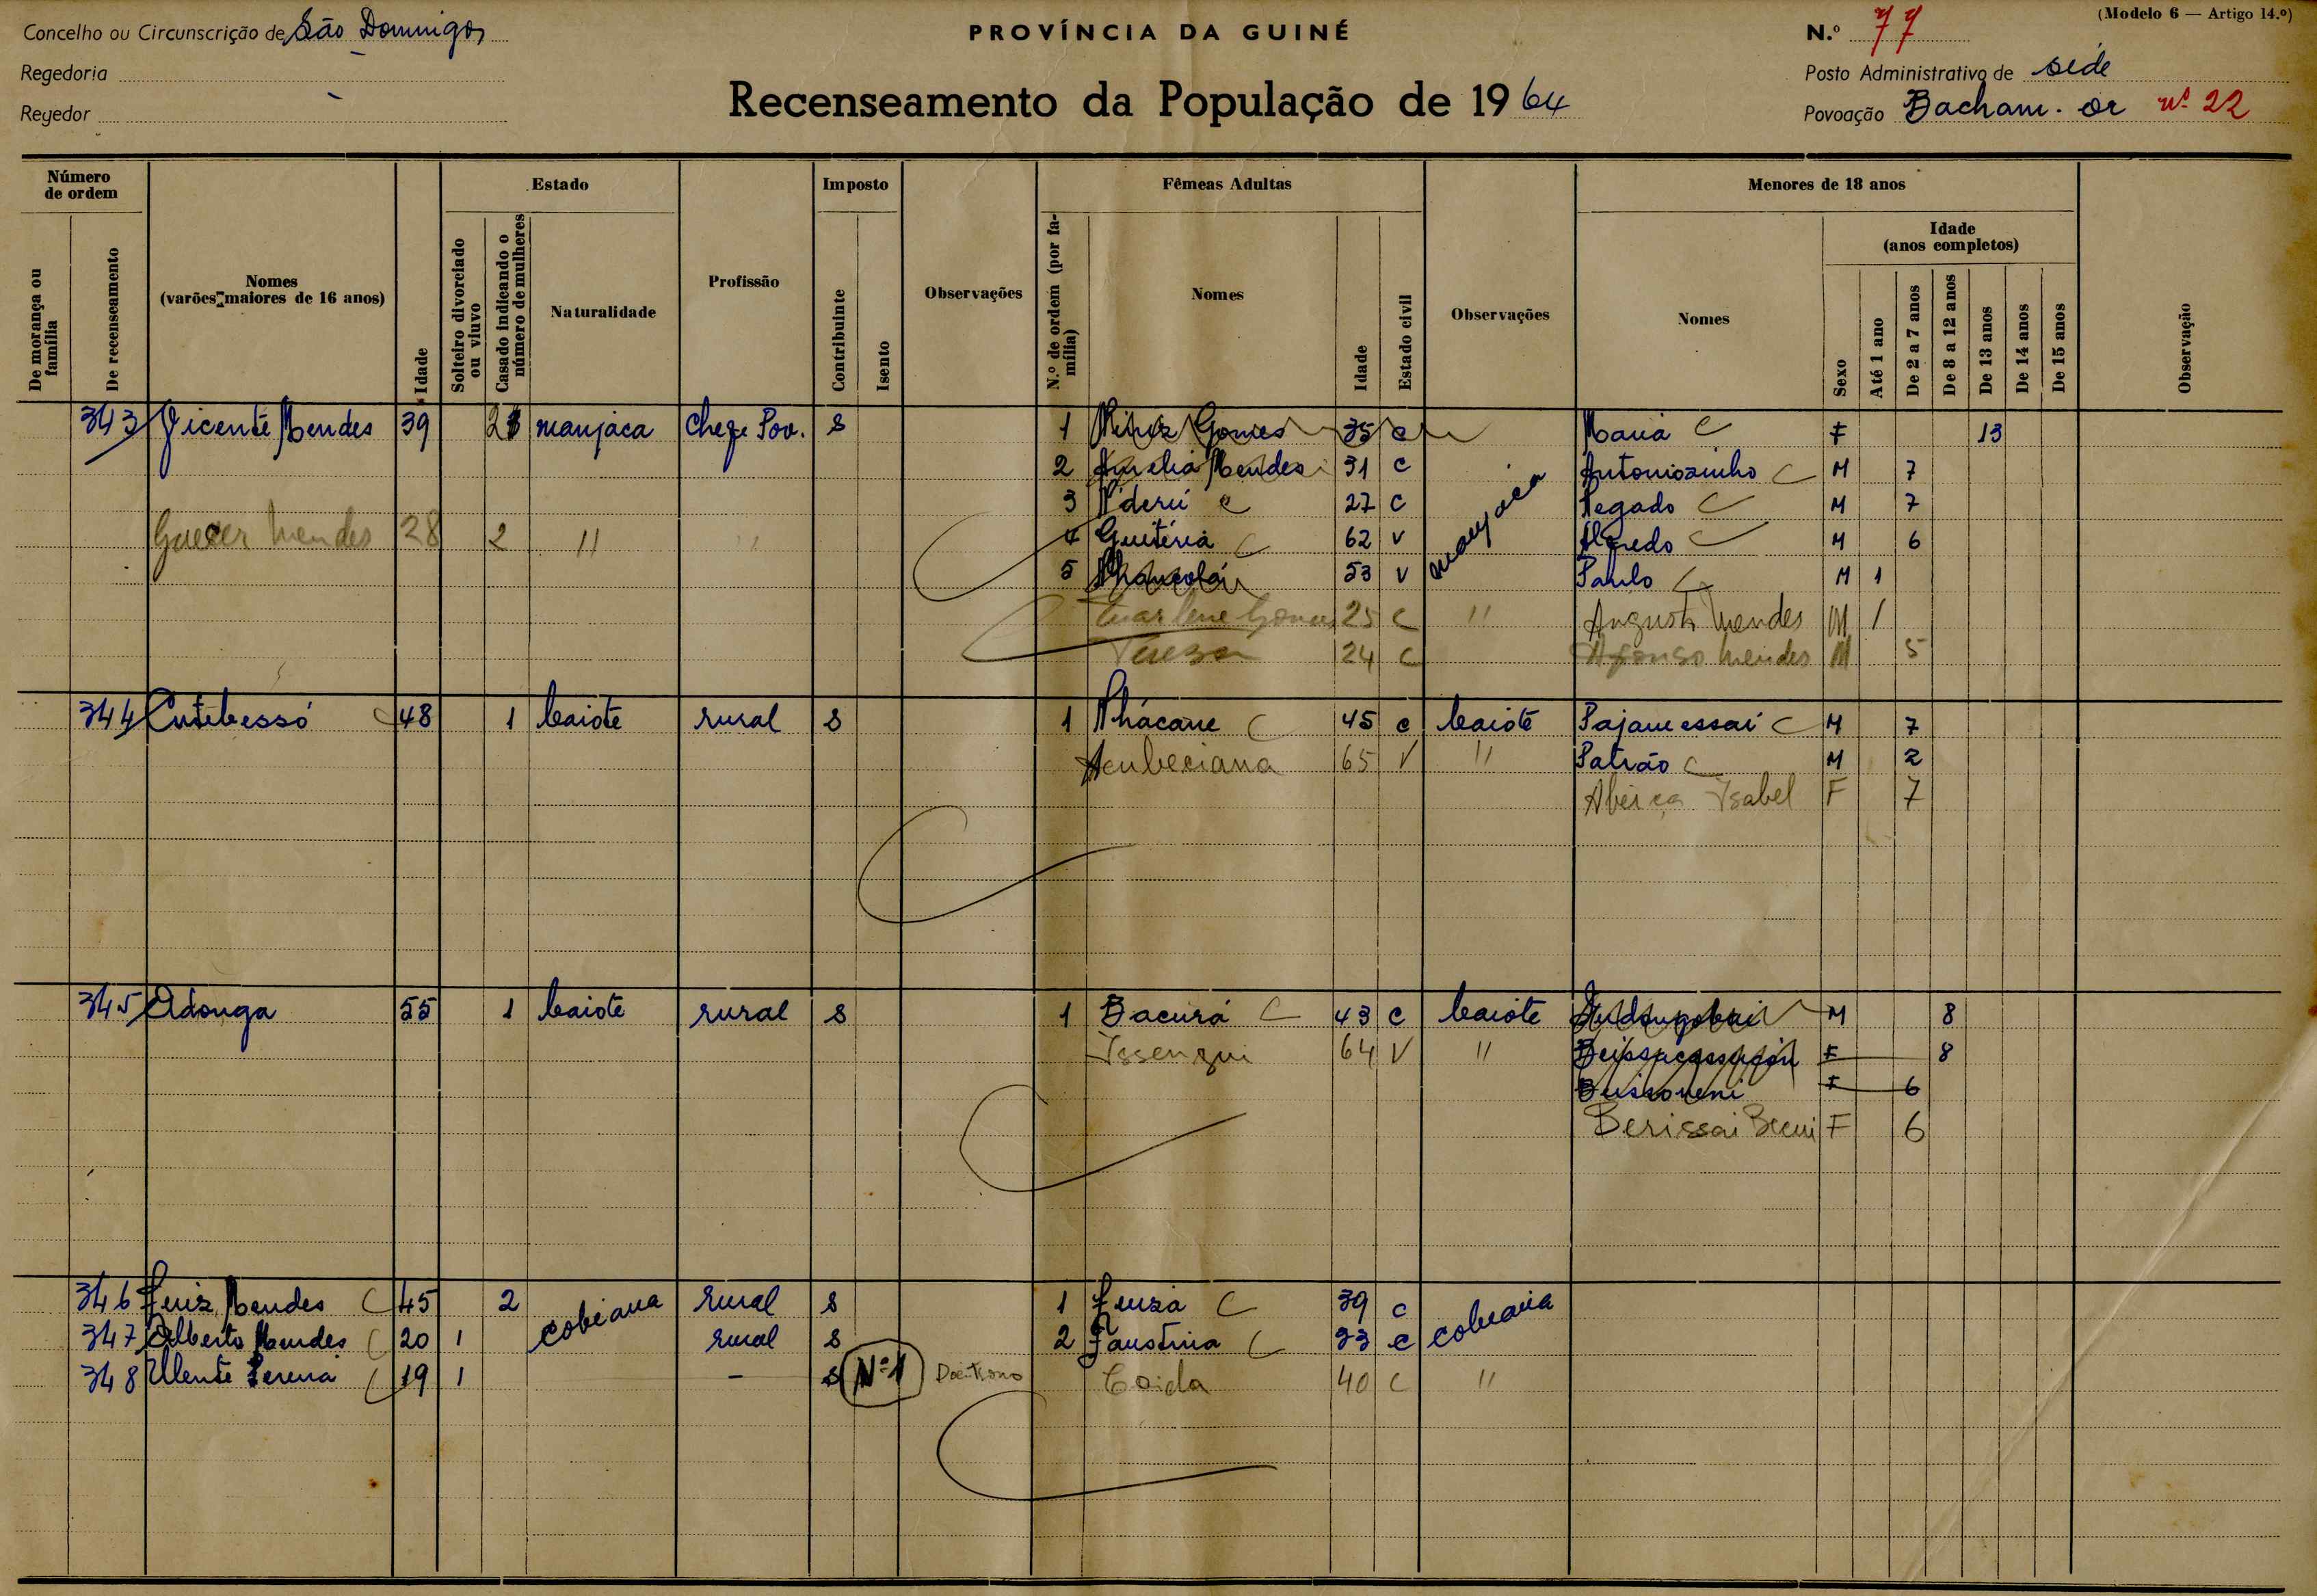 Concelho ou Circunscrição de São Domingos
Regedoria
Regedor
PROVÍNCIA DA GUINÉ
Recenseamento da População de 1964
(Modelo 6 — Artigo 14.º)
N.º 77
Posto Administrativo de sede
Povoação Bacham. or nº 22
Número de ordem
De morança ou família
De recenseamento
Nomes (varões maiores de 16 anos)
Idade
Estado
Solteiro divorciado ou viuvo
Casado indicando o número de mulheres
Naturalidade
Profissão
Imposto
Contribuinte
Isento
Observações
Fêmeas Adultas
N.º de ordem (por família)
Nomes
Idade
Estado civil
Observações
Menores de 18 anos
Nomes
Idade (anos completos)
Sexo
Até 1 ano
De 2 a 7 anos
De 8 a 12 anos
De 13 anos
De 14 anos
De 15 anos
Observação
343 Vicente Mendes 39 2 manjaca Chefe Pov. S 1 Gomes 35 c Maria C F 13
2 Aurelia Mendes 31 c manjaca Antoniozinho C M 7
3 N'deru c 27 c Pegado C M 7
Mendes 28 2 " " 4 Guiteria C 62 v Alfredo C M 6
5 53 v Paulo C M 1
Gomes 25 c " Augusto Mendes M 1
Tereza 24 c Afonso Mendes M 5
344 Cutebessó C 48 1 baiote rural S 1 Nhácane C 45 c baiote Pajamessai C M 7
65 V " Patrão C M 2
Isabel F 7
345 Adonga 55 1 baiote rural S 1 Bacurá C 43 c baiote M 8
Issengui 64 V " F 8
F 6
Berissai F 6
346 Luiz Mendes C 45 2 cobiana rural S 1 Luiza C 39 c cobiana
347 Alberto Mendes C 20 1 rural S 2 Faustina C 33 c
348 Pereira C 19 1 - S Nº 1 Coida 40 c "